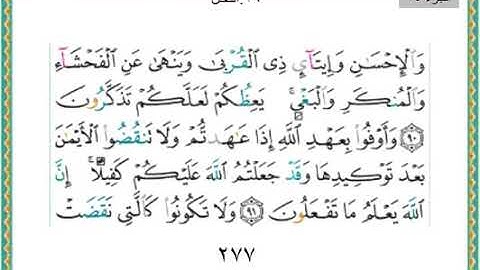 وَٱلْإِحْسَـٰنِ وَإِيتَآئِ ذِى ٱلْقُرْبَىٰ وَيَنْهَىٰ عَنِ ٱلْفَحْشَآءِ
وَٱلْمُنكَرِ وَٱلْبَغْىِ ۚ يَعِظُكُمْ لَعَلَّكُمْ تَذَكَّرُونَ
٩٠ وَأَوْفُوا۟ بِعَهْدِ ٱللَّهِ إِذَا عَـٰهَدتُّمْ وَلَا تَنقُضُوا۟ ٱلْأَيْمَـٰنَ
بَعْدَ تَوْكِيدِهَا وَقَدْ جَعَلْتُمُ ٱللَّهَ عَلَيْكُمْ كَفِيلًا ۚ إِنَّ
ٱللَّهَ يَعْلَمُ مَا تَفْعَلُونَ ٩١ وَلَا تَكُونُوا۟ كَٱلَّتِى نَقَضَتْ
٢٧٧